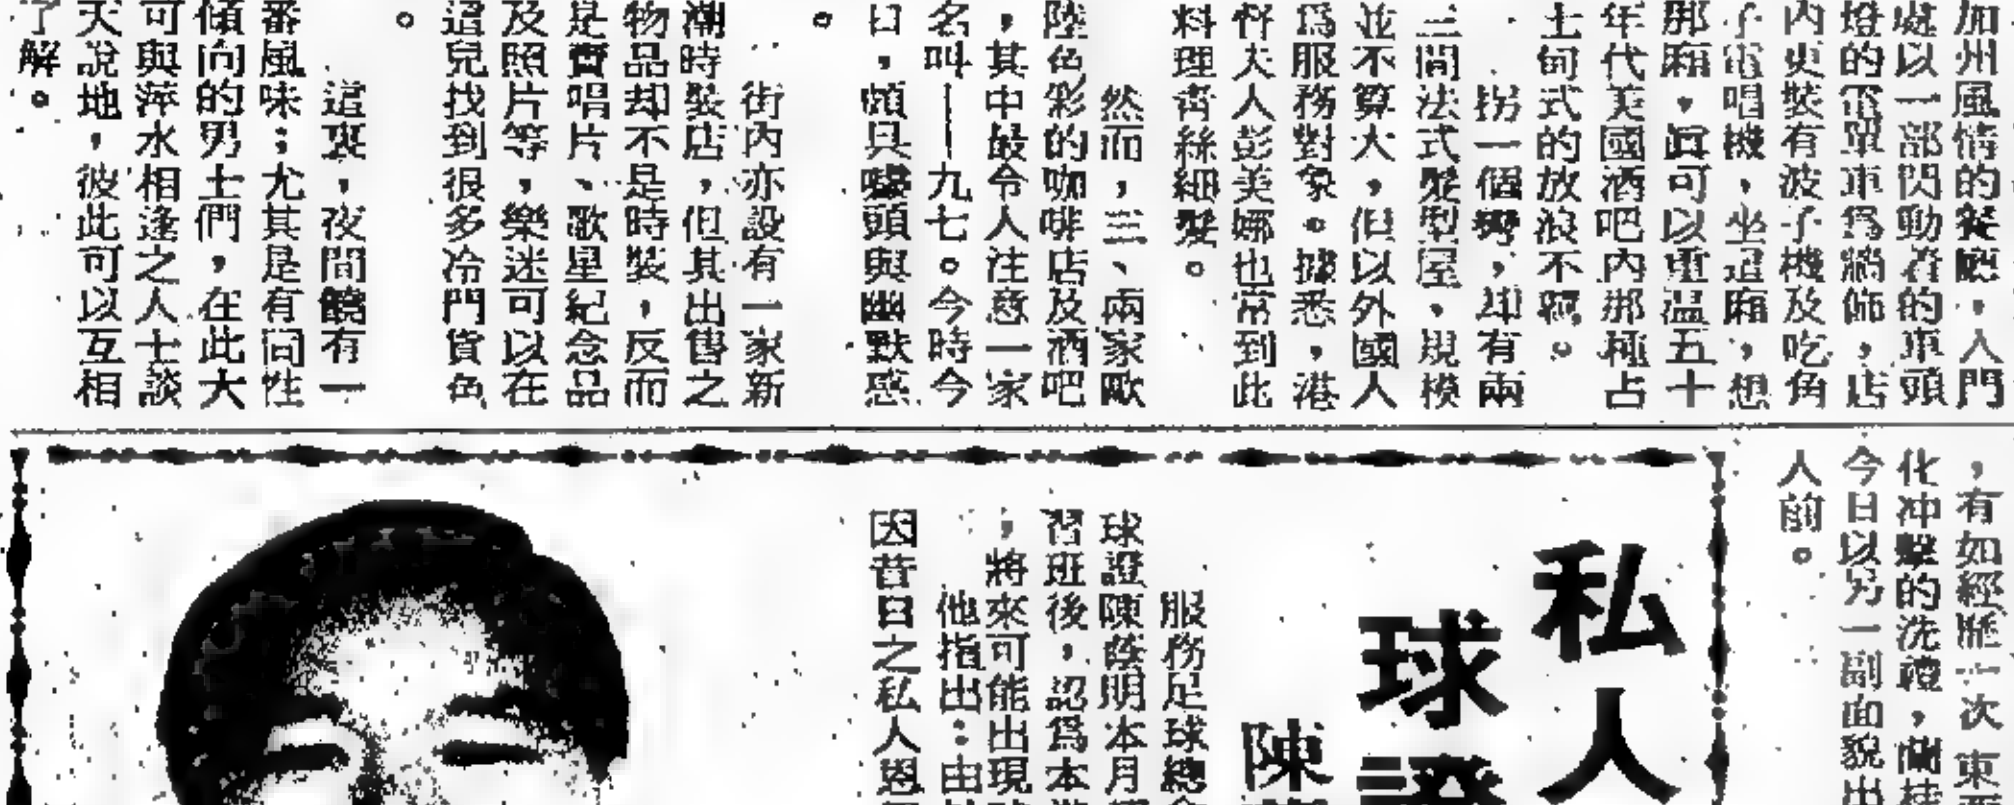 加州風情的餐廳，入門
處以一部閃動着的車頭
燈的電單車爲裝飾，店
內更裝有波子機及吃角
子電唱機，坐這廂，想
那廂，眞可以重温五十
年代美國酒吧內那種占
士甸式的放浪不羈。
拐一個彎，却有兩
三間法式髮型屋，規模
並不算大，但以外國人
爲服務對象。據悉，港
督夫人彭美娜也常到此
料理靑絲細髮。
然而，三、兩家歐
陸色彩的咖啡店及酒吧
，其中最令人注意一家
名叫——九七。今時今
日，頗具噱頭與幽默感
。
街內亦設有一家新
潮時裝店，但其出售之
物品却不是時裝，反而
是賣唱片、歌星紀念品
及照片等，樂迷可以在
這兒找到很多冷門貨色
。
這裏，夜間饒有一
番風味；尤其是有同性
傾向的男士們，在此大
可與萍水相逢之人士談
天說地，彼此可以互相
了解。
，有如經歷一次東西
化冲擊的洗禮，蘭桂
今日以另一副面貌出
人前。
私人
球證
陳
服務足球總
球證陳蔭明本月
習班後，認爲本
，將來可能出現
他指出：由
因昔日之私人恩